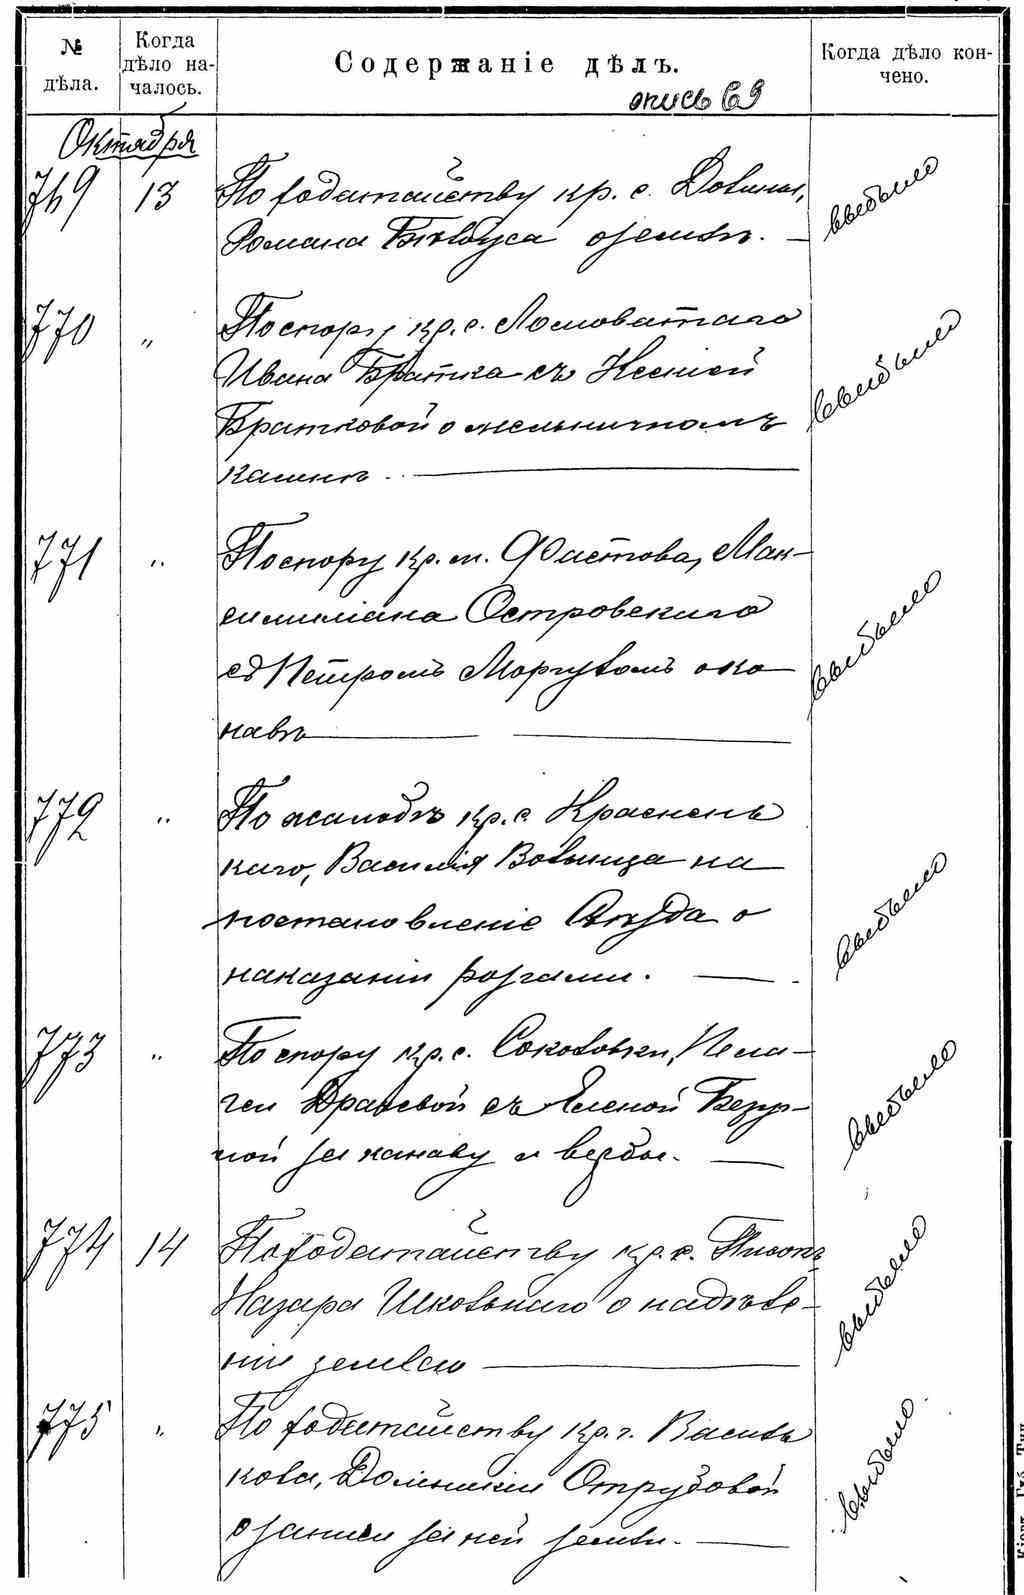 № дѣла.
Когда дѣло на-
чалось.
Содержаніе дѣлъ.
Когда дѣло кон-
чено.
опись 69
Октября
769 13 По ходатайству кр. с. Долины,
Романа о землѣ. —
выбыло
770 " По спору кр. с. Ломоватаго
Ивана Братка съ Ксеніей
Братковой о мельничномъ
камнѣ. —
выбыло
771 " По спору кр. м. Фастова, Мак-
симиліана Островскаго
съ Петромъ о ка
навѣ —
выбыло
772 " По жалобѣ кр. с. Краснень
каго, Василія на
постановленіе Съѣзда о
наказаніи розгами. —
выбыло
773 " По спору кр. с. Соколовки, Пела-
геи съ Еленой
за канаву и вербы. —
выбыло
774 14 По ходатайству кр. с.
Назара Школьнаго о надѣле-
ніи землею —
выбыло
775 " По ходатайству кр. г. Василь
кова, Доминикіи Отрубовой
о записи за ней земли. —
выбыло
Кіевъ. Губ. Тип.